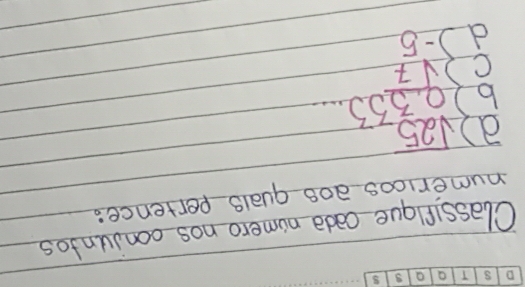 D S T Q Q S S
Classifique cada número nos conjuntos
numéricos aos quais pertence:
a) √25
b) 0,333...
c) √7
d) -5